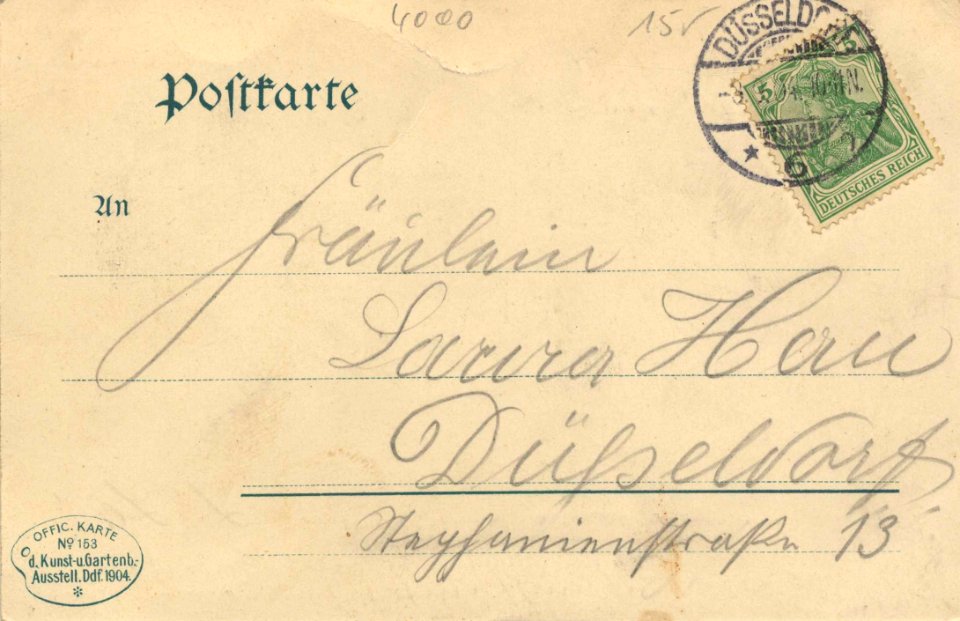 4000
15
DÜSSELDORF
5
5
DEUTSCHES REICH
Postkarte
An
Fräulein
Laura Hau
Düsseldorf
Stephanienstraße 13
OFFIC. KARTE
No 153
d. Kunst-u. Gartenb.-
Ausstell. Ddf. 1904.